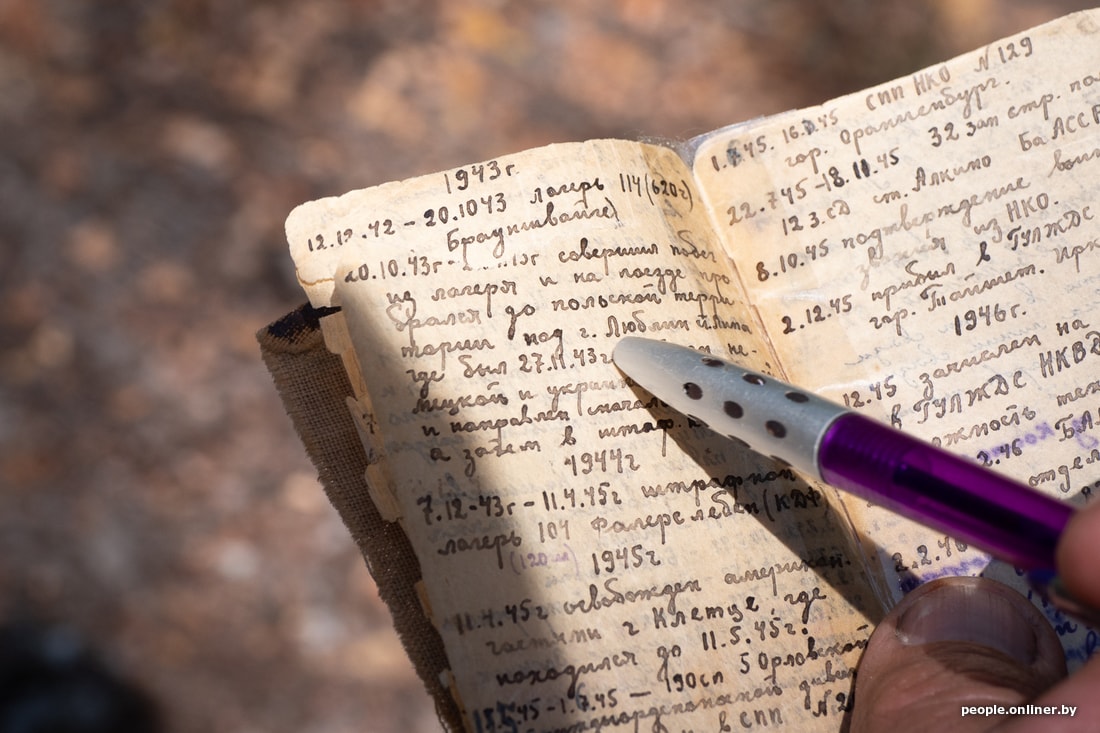 1943г.
12.12.42 – 20.1043 лагерь 114(620г)
Брауншвайге)
20.10.43г- совершил побег
из лагеря и на поезде про
брался до польской терри-
тории под г. Люблин
где был 27.11.43г не-
мецкой и украин
и направлен (сначал
а затем в штаф.
1944г
7.12-43г - 11.4.45г штрафной
лагерь 104 Фалерслебен (КДФ)
(120км) 1945г
11.4.45г освобожден американ.
частями г Клетце, где
находился до 11.5.45г.
1.7.45 – 190сп 5 Орловской
дивиз
и в СПП №2
СПП НКО №129
1. .45. 16. .45
гор. Ораниенбург.
22.745-18.10.45 32 Зап стр. по
12 З.сД ст. Алкино БаАССР
8.10.45 подтверждение воин
звания из НКО.
2.12.45 прибыл в ГУЛЖДС
гор. Тайшет. Ирк
1946г.
12.45 зачислен на
в ГУЛЖДС НКВД
жность тех
2.46 БА
отдел
2.2.46
people.onliner.by